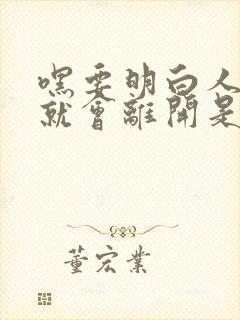 嘿要明白人
就會離開是
董宏業